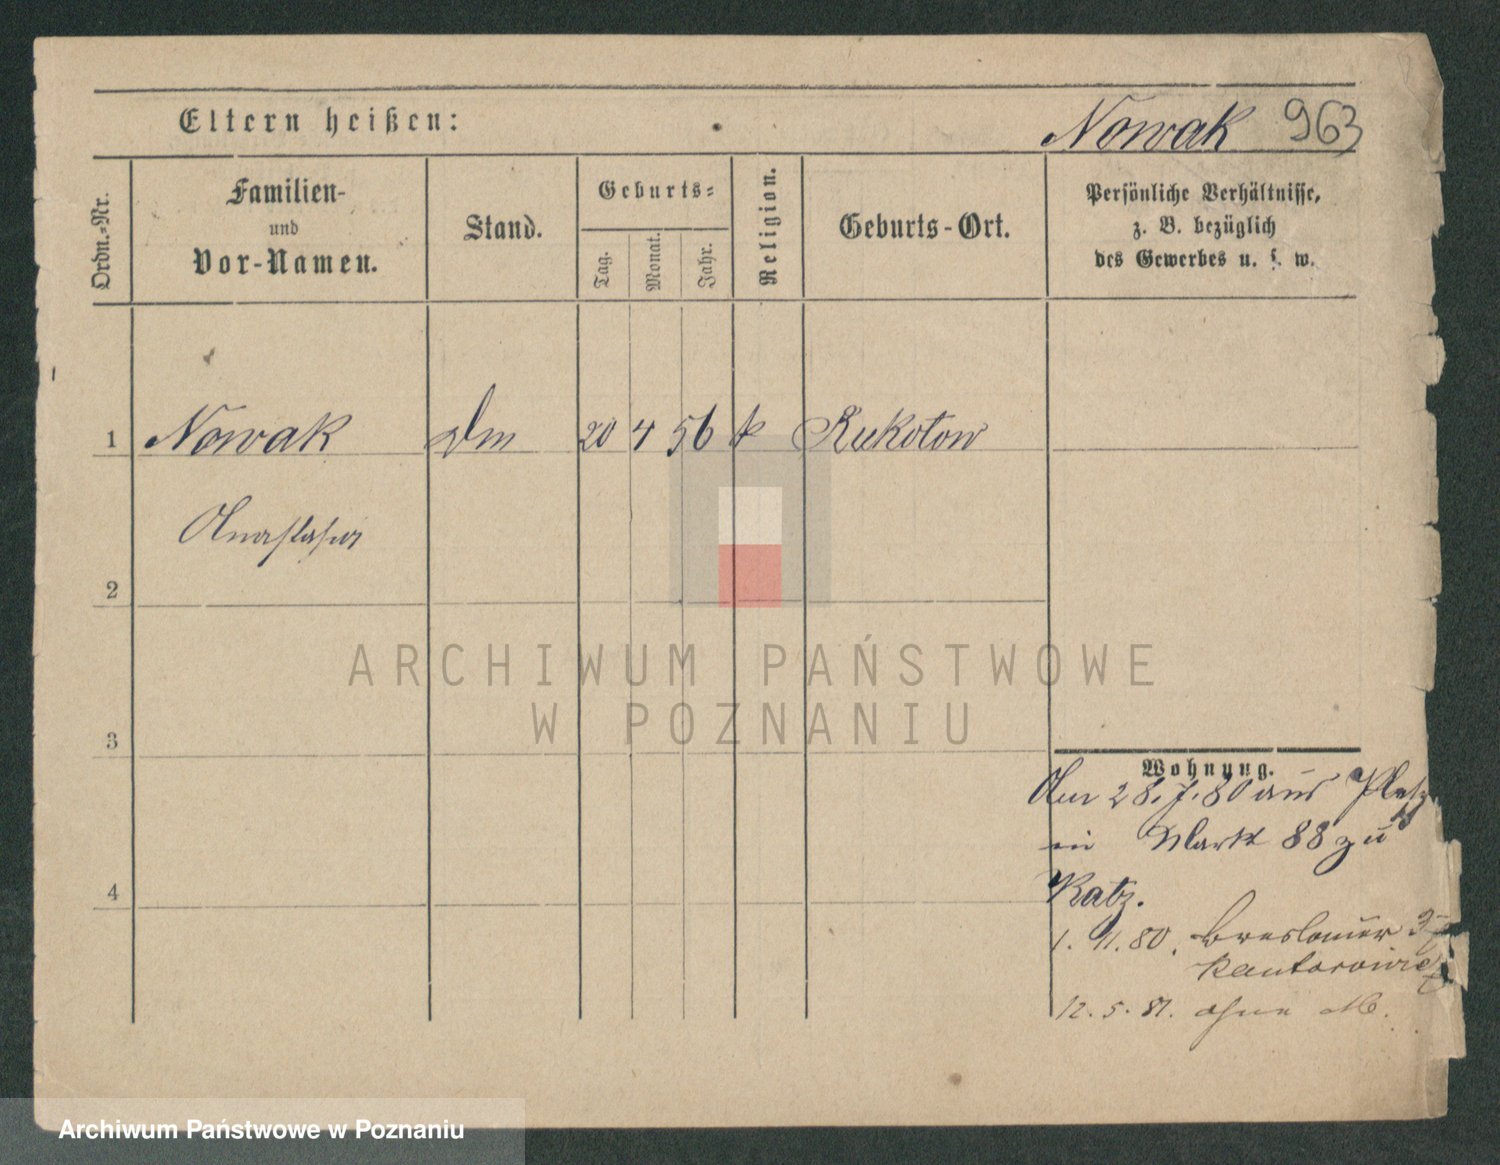 Eltern heißen:
Nowak 963
Ordn.-Nr.
Familien-
und
Vor-Namen.
Stand.
Geburts-
Tag.
Monat.
Jahr.
Religion.
Geburts-Ort.
Persönliche Verhältnisse,
z. B. bezüglich
des Gewerbes u. s. w.
1 Nowak Dm 20 4 56 k Rukotow
Anastasia
2
3
4
ARCHIWUM PAŃSTWOWE
W POZNANIU
Wohnung.
28.7.80 aus
in Markt 88 zu
Katz.
1. 11. 80. Breslauer
Kantorowicz
12. 5. 81. ohne M.
Archiwum Państwowe w Poznaniu